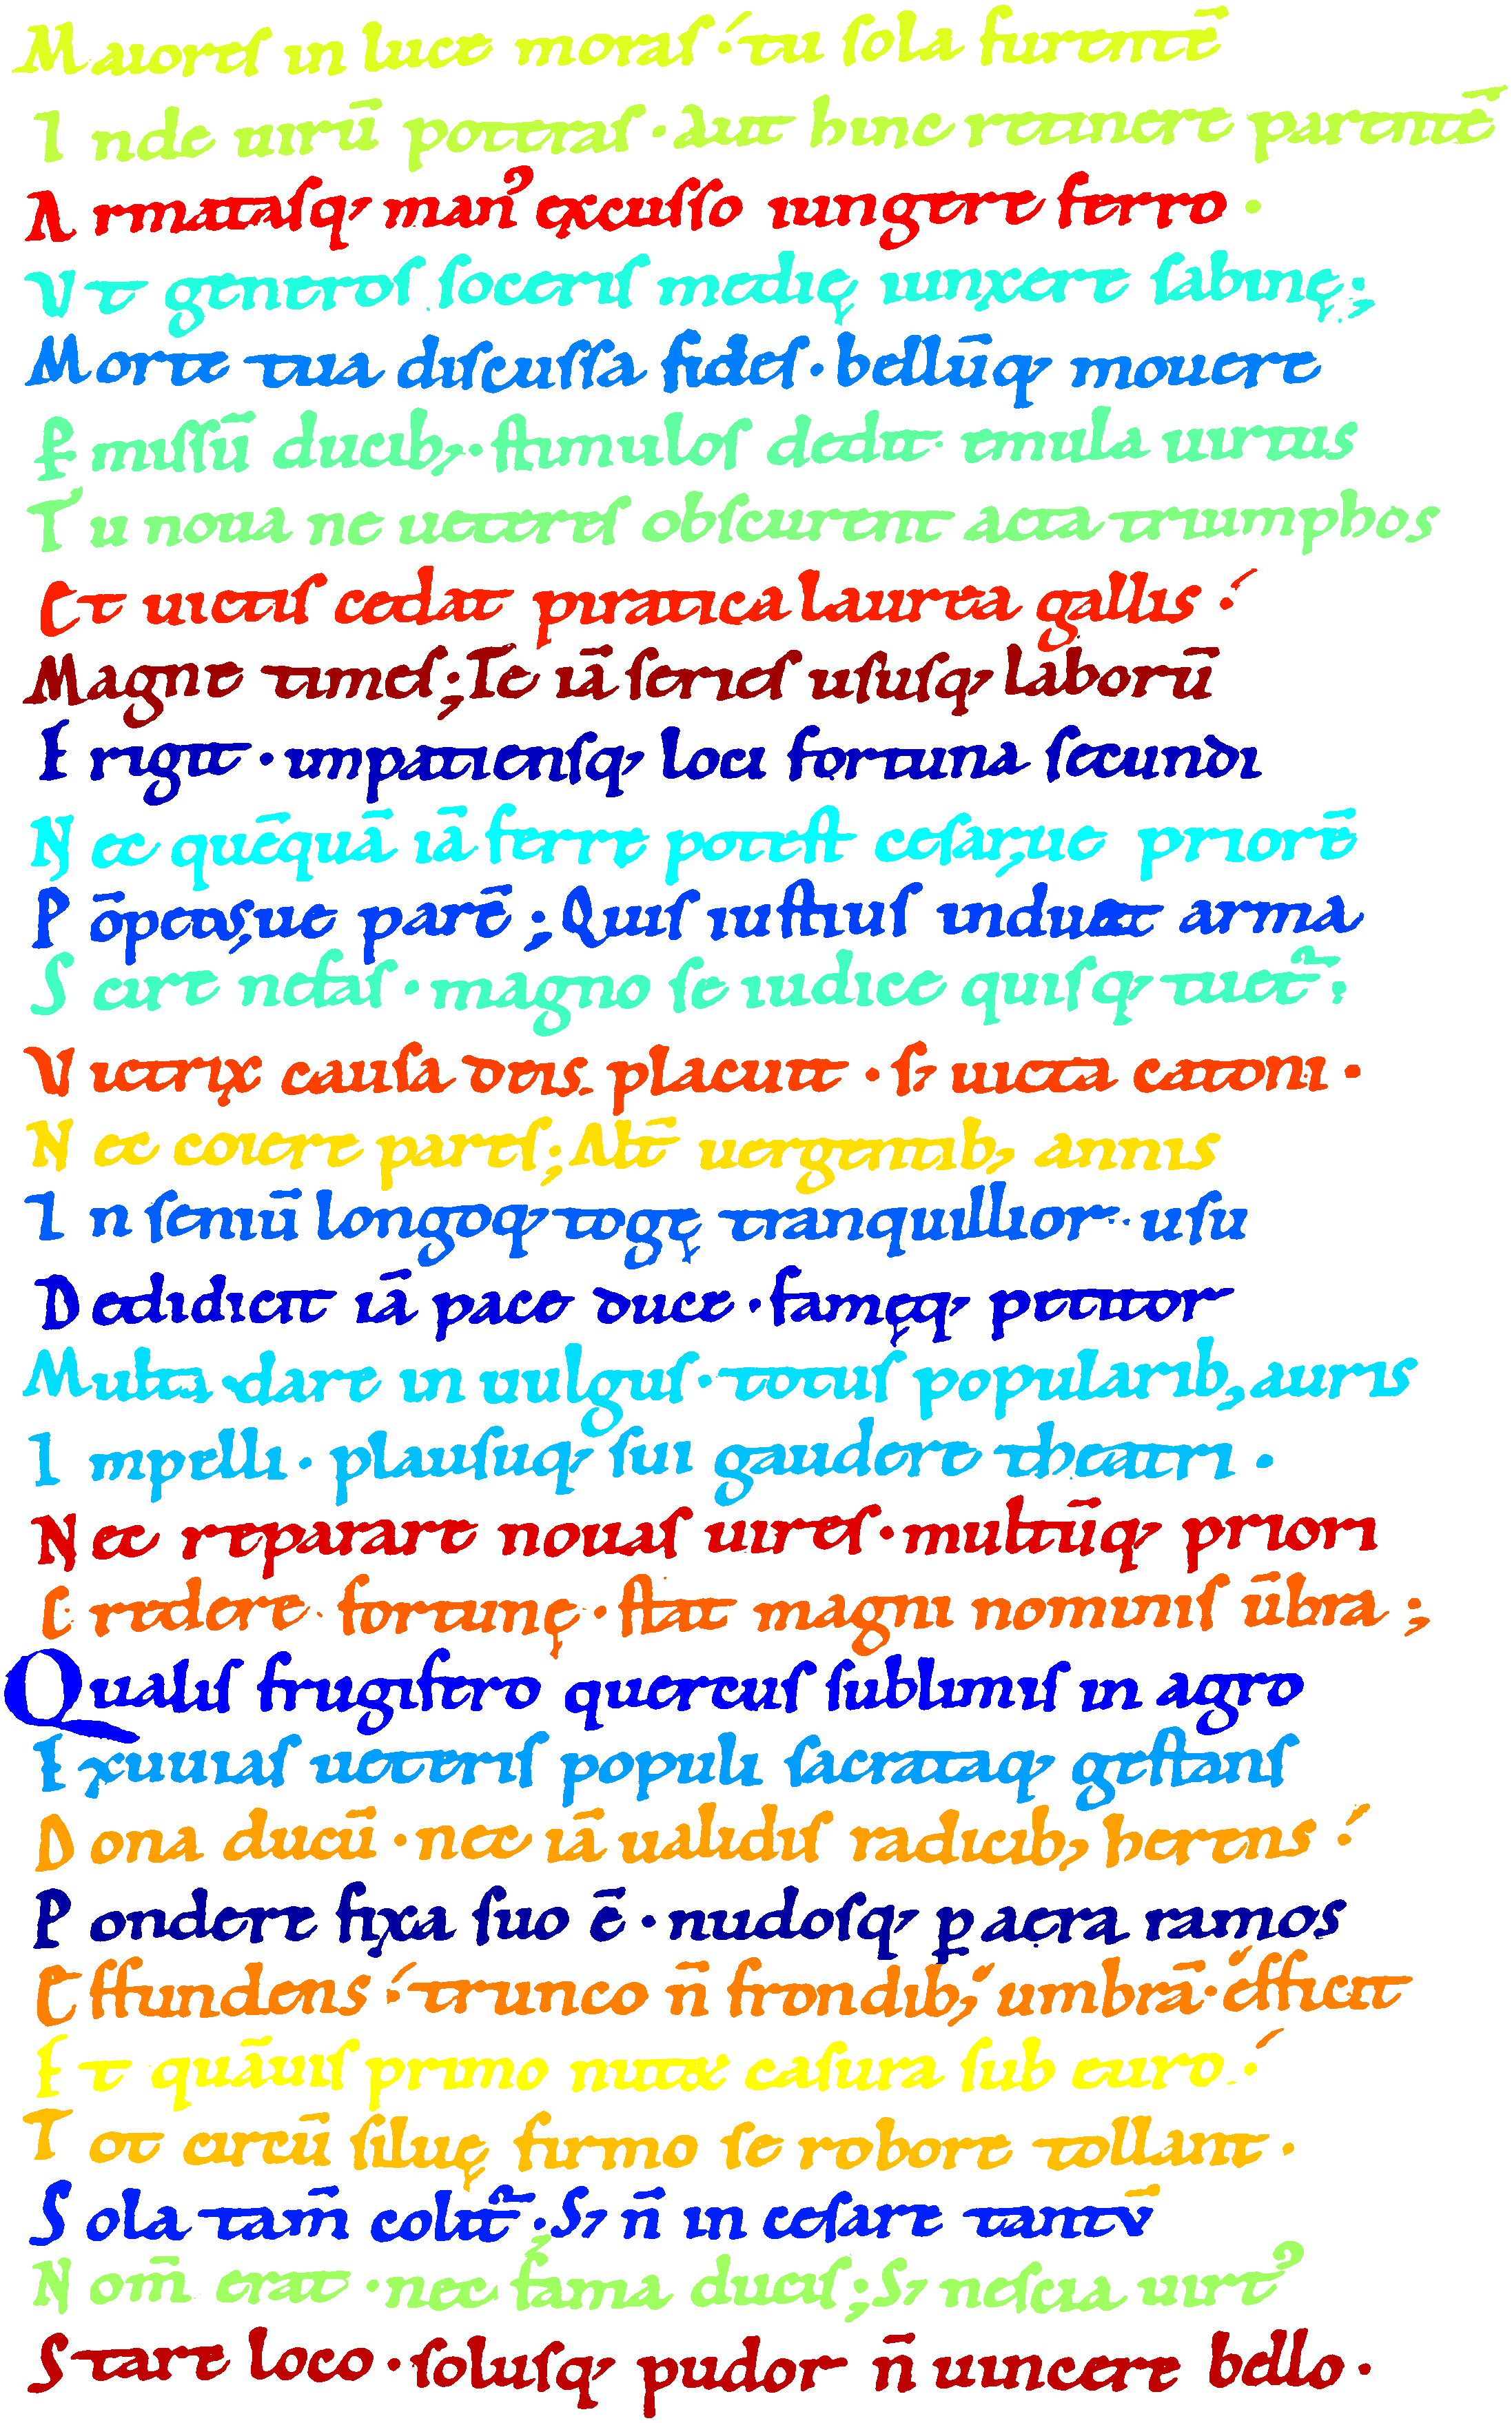 Maioreſ in luce moraſ ؛ tu ſola furentē
I nde uirū poteraſ · aut hinc retinere parentē
A rmataſq; man᾽ excuſſo iungere ferro ·
V t generoſ ſoceriſ medię iunxere ſabinę;
Morte tua diſcuſſa fideſ · bellūq; mouere
ꝑ miſſū ducib; · ſtimuloſ dedit · emula uirtus
T u noua ne uetereſ obſcurent acta triumphos
Et uictiſ cedat piratica laurea gallis ؛
Magne timeſ; Te iā ſerieſ uſuſq; laborū
E rigit · impatienſq; loci fortuna ſecundi
N ec quēquā iā ferre poteſt ceſar,ue priorē
P ōpeius,ue parē ; Quiſ iuſtiuſ induat arma
S cire nefaſ · magno ſe iudice quiſq; tuet᷑ ·
V ictrix cauſa deis placuit · ſ; uicta catoni ·
N ec coiere pareſ; Alt̄ uergentib; annis
I n ſeniū longoq; togę tranquillior · uſu
D edidicit iā pace duce · famęq; petitor
Multa dare in uulguſ · totuſ popularib; auris
I mpelli · plauſuq; ſui gaudere theatri ·
N ec reparare nouaſ uireſ · multūq; priori
C redere fortunę · ſtat magni nominiſ ūbra ;
Qualiſ frugifero quercuſ ſublimiſ in agro
E xuuiaſ ueteriſ populi ſacrataq; geſtanſ
D ona ducū · nec iā ualidiſ radicib; herens ؛
P ondere fixa ſuo ē · nudoſq; ꝑ aera ramos
E ffundens ؛ trunco n̄ frondib; umbrā · efficit
E t quāuiſ primo nutet caſura ſub euro ؛
T ot circū ſiluę firmo ſe robore tollant ·
S ola tam̄ colit᷑ · S; n̄ in ceſare tantū
N om̄ erat · nec fama duciſ; S; neſcia uirt᾽
Stare loco · ſoluſq; pudor n̄ uincere bello ·